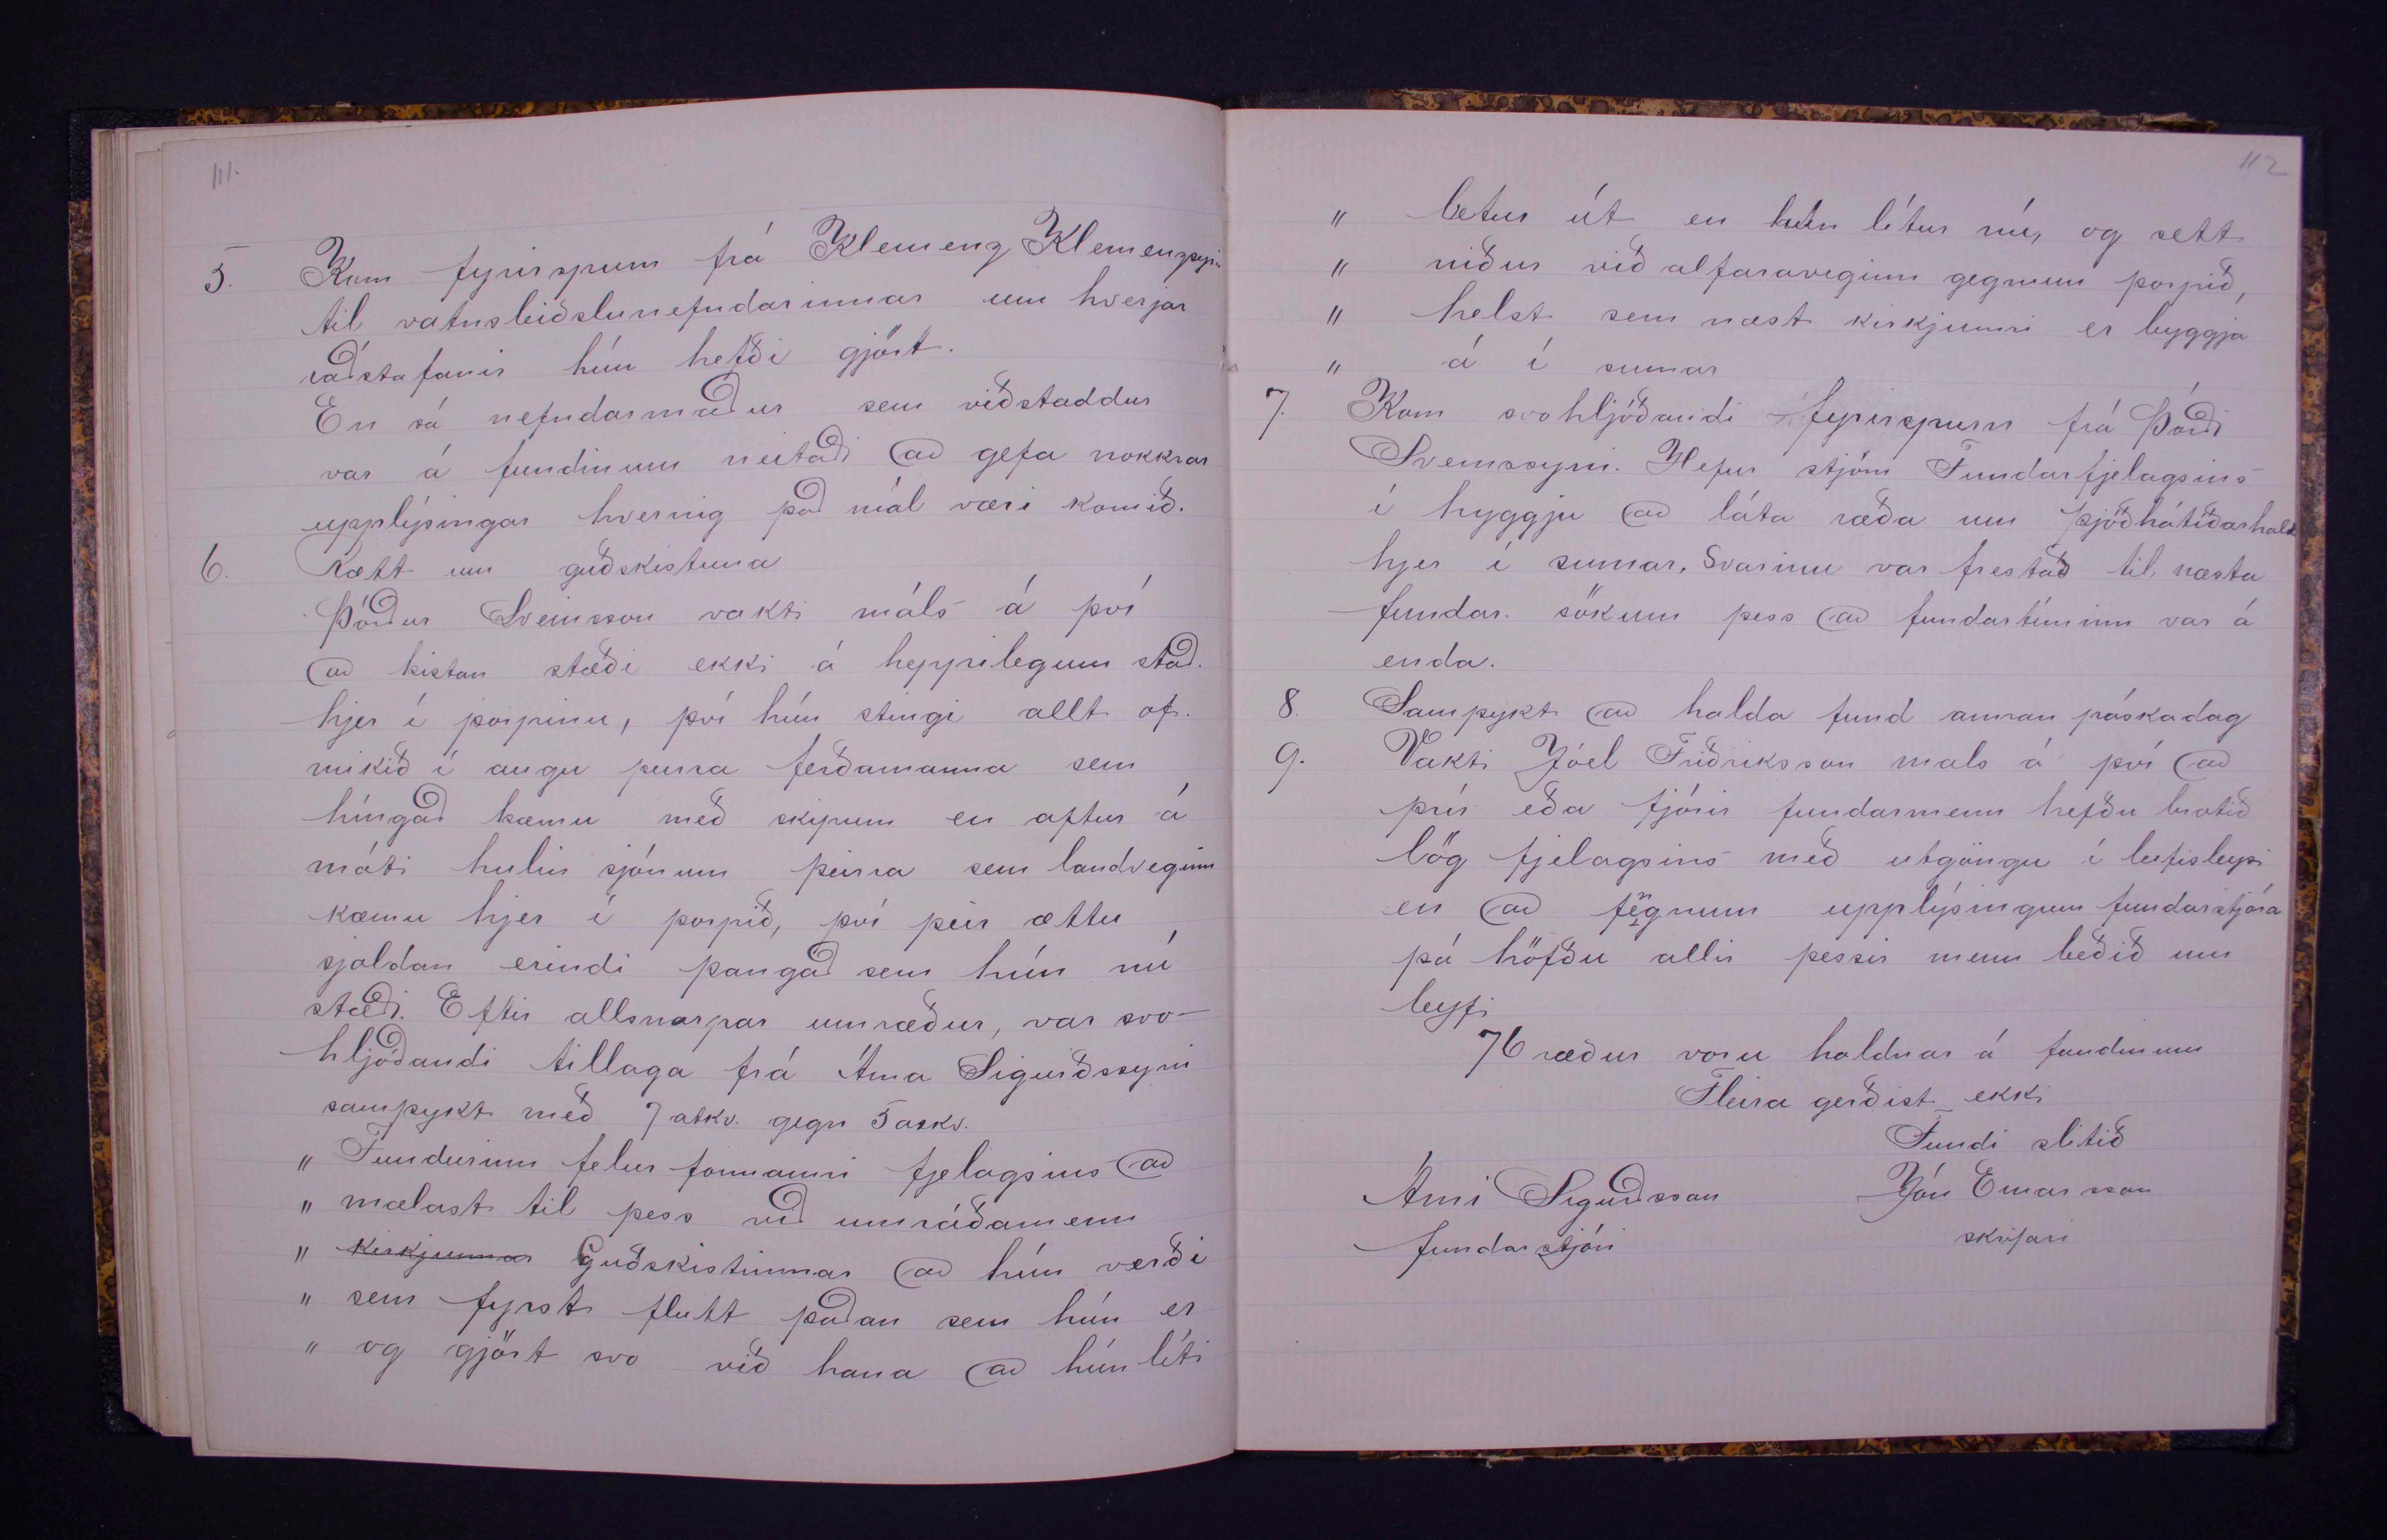 111.
5. Kom fyrirspurn frá Klemenz Klemenzsyni
til vatnsleiðslunefndarinnar um hverjar
ráðstafanir hún hefði gjört.
En sá nefndarmaður sem viðstaddur
var á fundinum neitaði að gefa nokkrar
upplýsingar hvernig það mál væri komið.
6. Rætt um guðskistuna
Þórður Sveinsson vakti máls á því
að kistan stæði ekki á heppilegum stað.
hjer í þorpinu, því hún stingi allt of.
mikið í augu þeirra ferðamanna sem
hingað kæmu með skipum en aftur á
móti hulin sjónum þeirra sem landveginn
kæmu hjer í þorpið, því þeir ættu
sjaldan erindi þangað sem hún nú
stæði. Eftir allsnarpar umræður, var svo-
hljóðandi tillaga frá Árna Sigurðssyni
samþykt með 7 atkv. gegn 5 atkv.
„ Fundurinn felur formanni fjelagsins að
„ mælast til þess við umráðamenn
„ kirkjunnar Guðskistunnar að hún verði
„ sem fyrst flutt þaðan sem hún er
„ og gjört svo við hana að hún líti
112
„ betur út en hún lítur nú, og sett
„ niður við alfaraveginn gegnum þorpið,
„ helst sem næst kirkjunni er byggja
„ á í sumar
7. Kom svohljóðandi fyrirspurn frá Þórði
Sveinssyni. Hefur stjórn Fundarfjelagsins
í hyggju að láta ræða um þjóðhátíðarhald
hjer í sumar. Svarinu var frestað til næsta
fundar. sökum þess að fundartíminn var á
enda.
8. Samþykt að halda fund annan páskadag
9. Vakti Jóel Friðriksson mals á því að
þrír eða fjórir fundarmenn hefðu brotið
lög fjelagsins með utgöngu í leifisleysi
en að fengnum upplýsingum fundarstjóra
þá höfðu allir þessir menn beðið um
leyfi
76 ræður voru haldnar á fundinum
Fleira gerðist ekki
Fundi slitið
Árni Sigurðsson Jón Einarsson
fundarstjóri skrifari